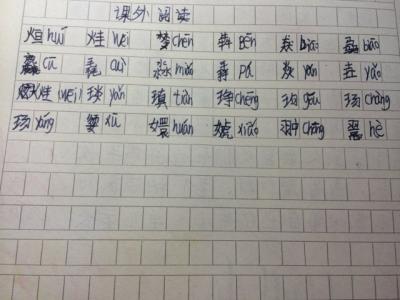 课外阅读
烜 huǐ 烓 wei 棽 chēn 犇 Bēn 焱 biāo 骉 biāo
麤 cū 毳 cuì 淼 miǎo 掱 pá 焱 yàn 垚 yáo
烓 (wēi) 琰 yǎn 瑱 tiàn 琤 chēng 玽 gǒu 玚 chàng
玚 yáng 媭 xū 嬛 huán 婋 xiāo 翀 chōng 翯 hè